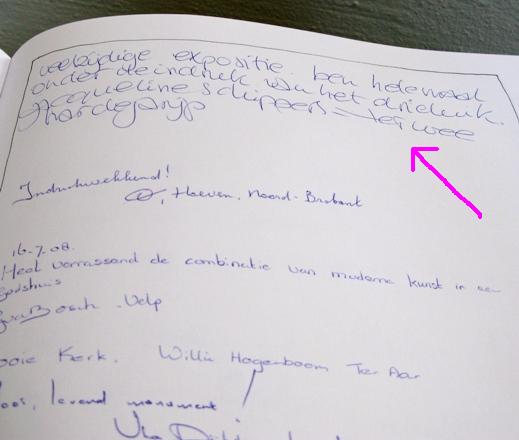 veelzijdige expositie. ben helemaal
onder de indruk van het drieluik.
Jacqueline Schippers - Terwee
Hardegarijp
Indrukwekkend!
, Hoeven, Noord-Brabant
16.7.08.
Heel verrassend de combinatie van moderne kunst in een
Godshuis
Bosch. Velp
ooie Kerk. Willie Hogenboom Ter Aar
levend monument